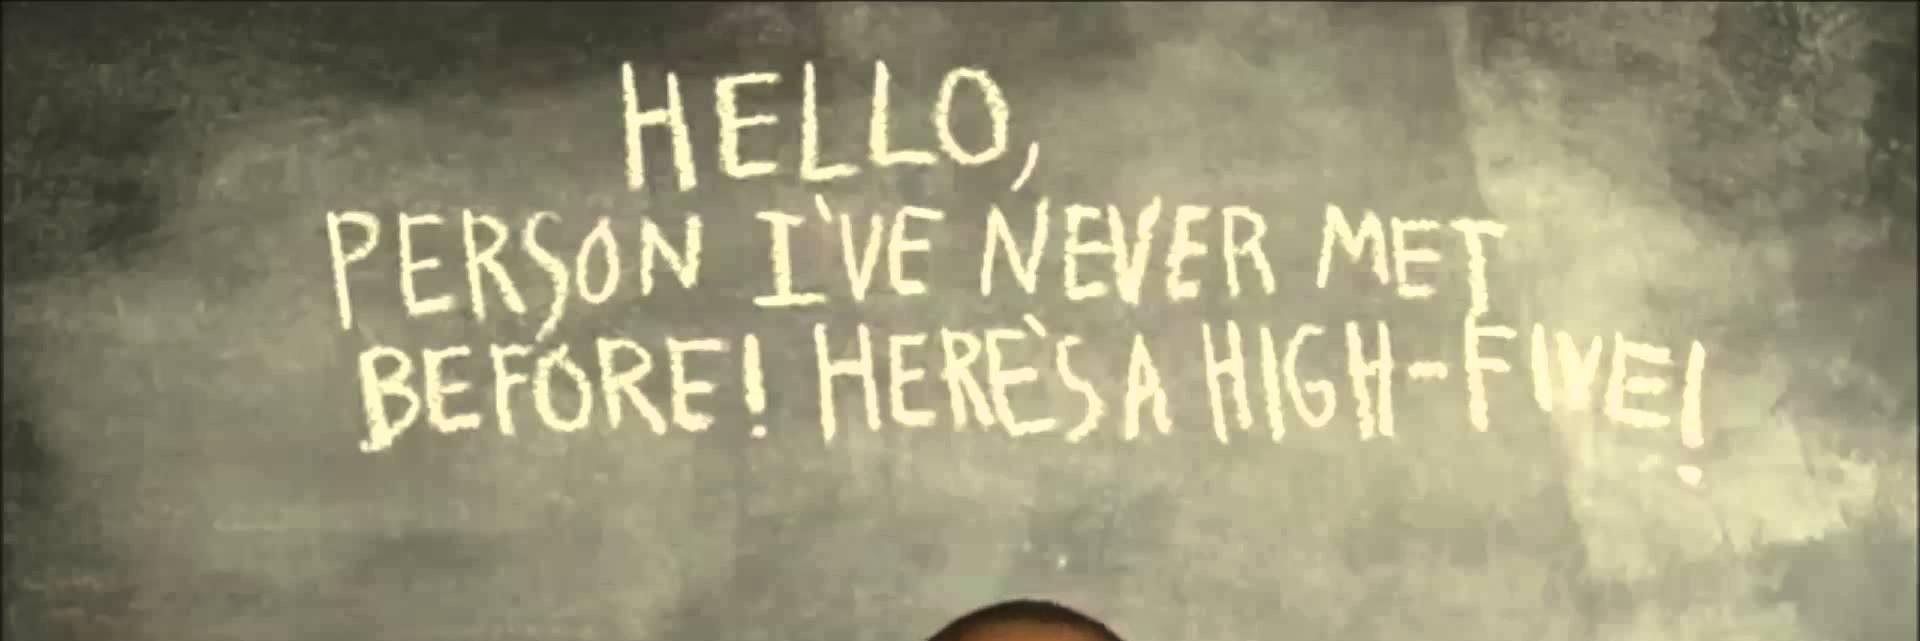 HELLO,
PERSON I'VE NEVER MET
BEFORE! HERE'S A HIGH-FIVE!